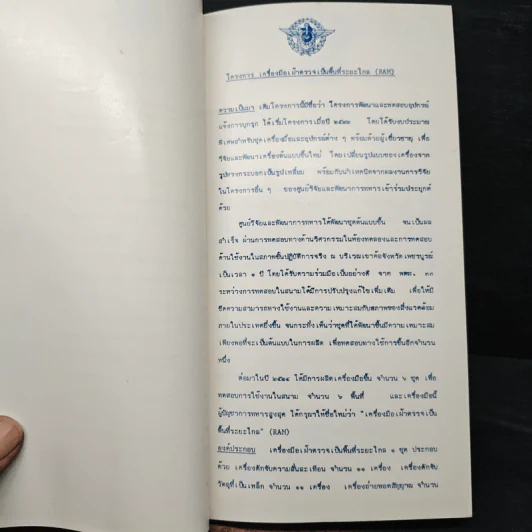 โครงการ เครื่องมือเฝ้าตรวจเป็นพื้นที่ระยะไกล (RAM)
ความเป็นมา เดิมโครงการนี้มีชื่อว่า โครงการพัฒนาและทดสอบอุปกรณ์
แจ้งการบุกรุก ได้เริ่มโครงการเมื่อปี ๒๕๒๒ โดยได้รับงบประมาณ
พิเศษสำหรับชุดเครื่องมือและอุปกรณ์ต่าง ๆ พร้อมด้วยผู้เชี่ยวชาญ เพื่อ
วิจัยและพัฒนาเครื่องต้นแบบขึ้นใหม่ โดยเปลี่ยนรูปแบบของเครื่องจาก
รูปทรงกระบอกเป็นรูปเหลี่ยม พร้อมกับนำเทคนิคจากผลงานการวิจัย
ในโครงการอื่น ๆ ของศูนย์วิจัยและพัฒนาการทหารเข้าร่วมประยุกต์
ด้วย
ศูนย์วิจัยและพัฒนาการทหารได้พัฒนาชุดต้นแบบขึ้น จนเป็นผล
สำเร็จ ผ่านการทดสอบทางด้านวิศวกรรมในห้องทดลองและการทดสอบ
ด้านใช้งานในสภาพขั้นปฏิบัติการจริง ณ บริเวณเขาค้อจังหวัดเพชรบูรณ์
เป็นเวลา ๑ ปี โดยได้รับความร่วมมือเป็นอย่างดี จาก พตท. ๓๓
ระหว่างการทดสอบในสนามได้มีการปรับปรุงแก้ไขเพิ่มเติม เพื่อให้มี
ขีดความสามารถทางใช้งานและความเหมาะสมกับสภาพของสิ่งแวดล้อม
ภายในประเทศยิ่งขึ้น จนกระทั่งเห็นว่าชุดที่ได้พัฒนาขึ้นมีความเหมาะสม
เพียงพอที่จะเป็นต้นแบบในการผลิต เพื่อทดสอบทางใช้การขึ้นอีกจำนวน
หนึ่ง
ต่อมาในปี ๒๕๒๔ ได้มีการผลิตเครื่องมือขึ้น จำนวน ๖ ชุด เพื่อ
ทดสอบการใช้งานในสนาม จำนวน ๖ พื้นที่ และเครื่องมือนี้
ผู้บัญชาการทหารสูงสุด ได้กรุณาให้ชื่อใหม่ว่า "เครื่องมือเฝ้าตรวจเป็น
พื้นที่ระยะไกล" (RAM)
องค์ประกอบ เครื่องมือเฝ้าตรวจเป็นพื้นที่ระยะไกล ๑ ชุด ประกอบ
ด้วย เครื่องดักจับความสั่นสะเทือน จำนวน ๑๑ เครื่อง เครื่องดักจับ
วัตถุที่เป็นเหล็ก จำนวน ๑๑ เครื่อง เครื่องถ่ายทอดสัญญาณ จำนวน